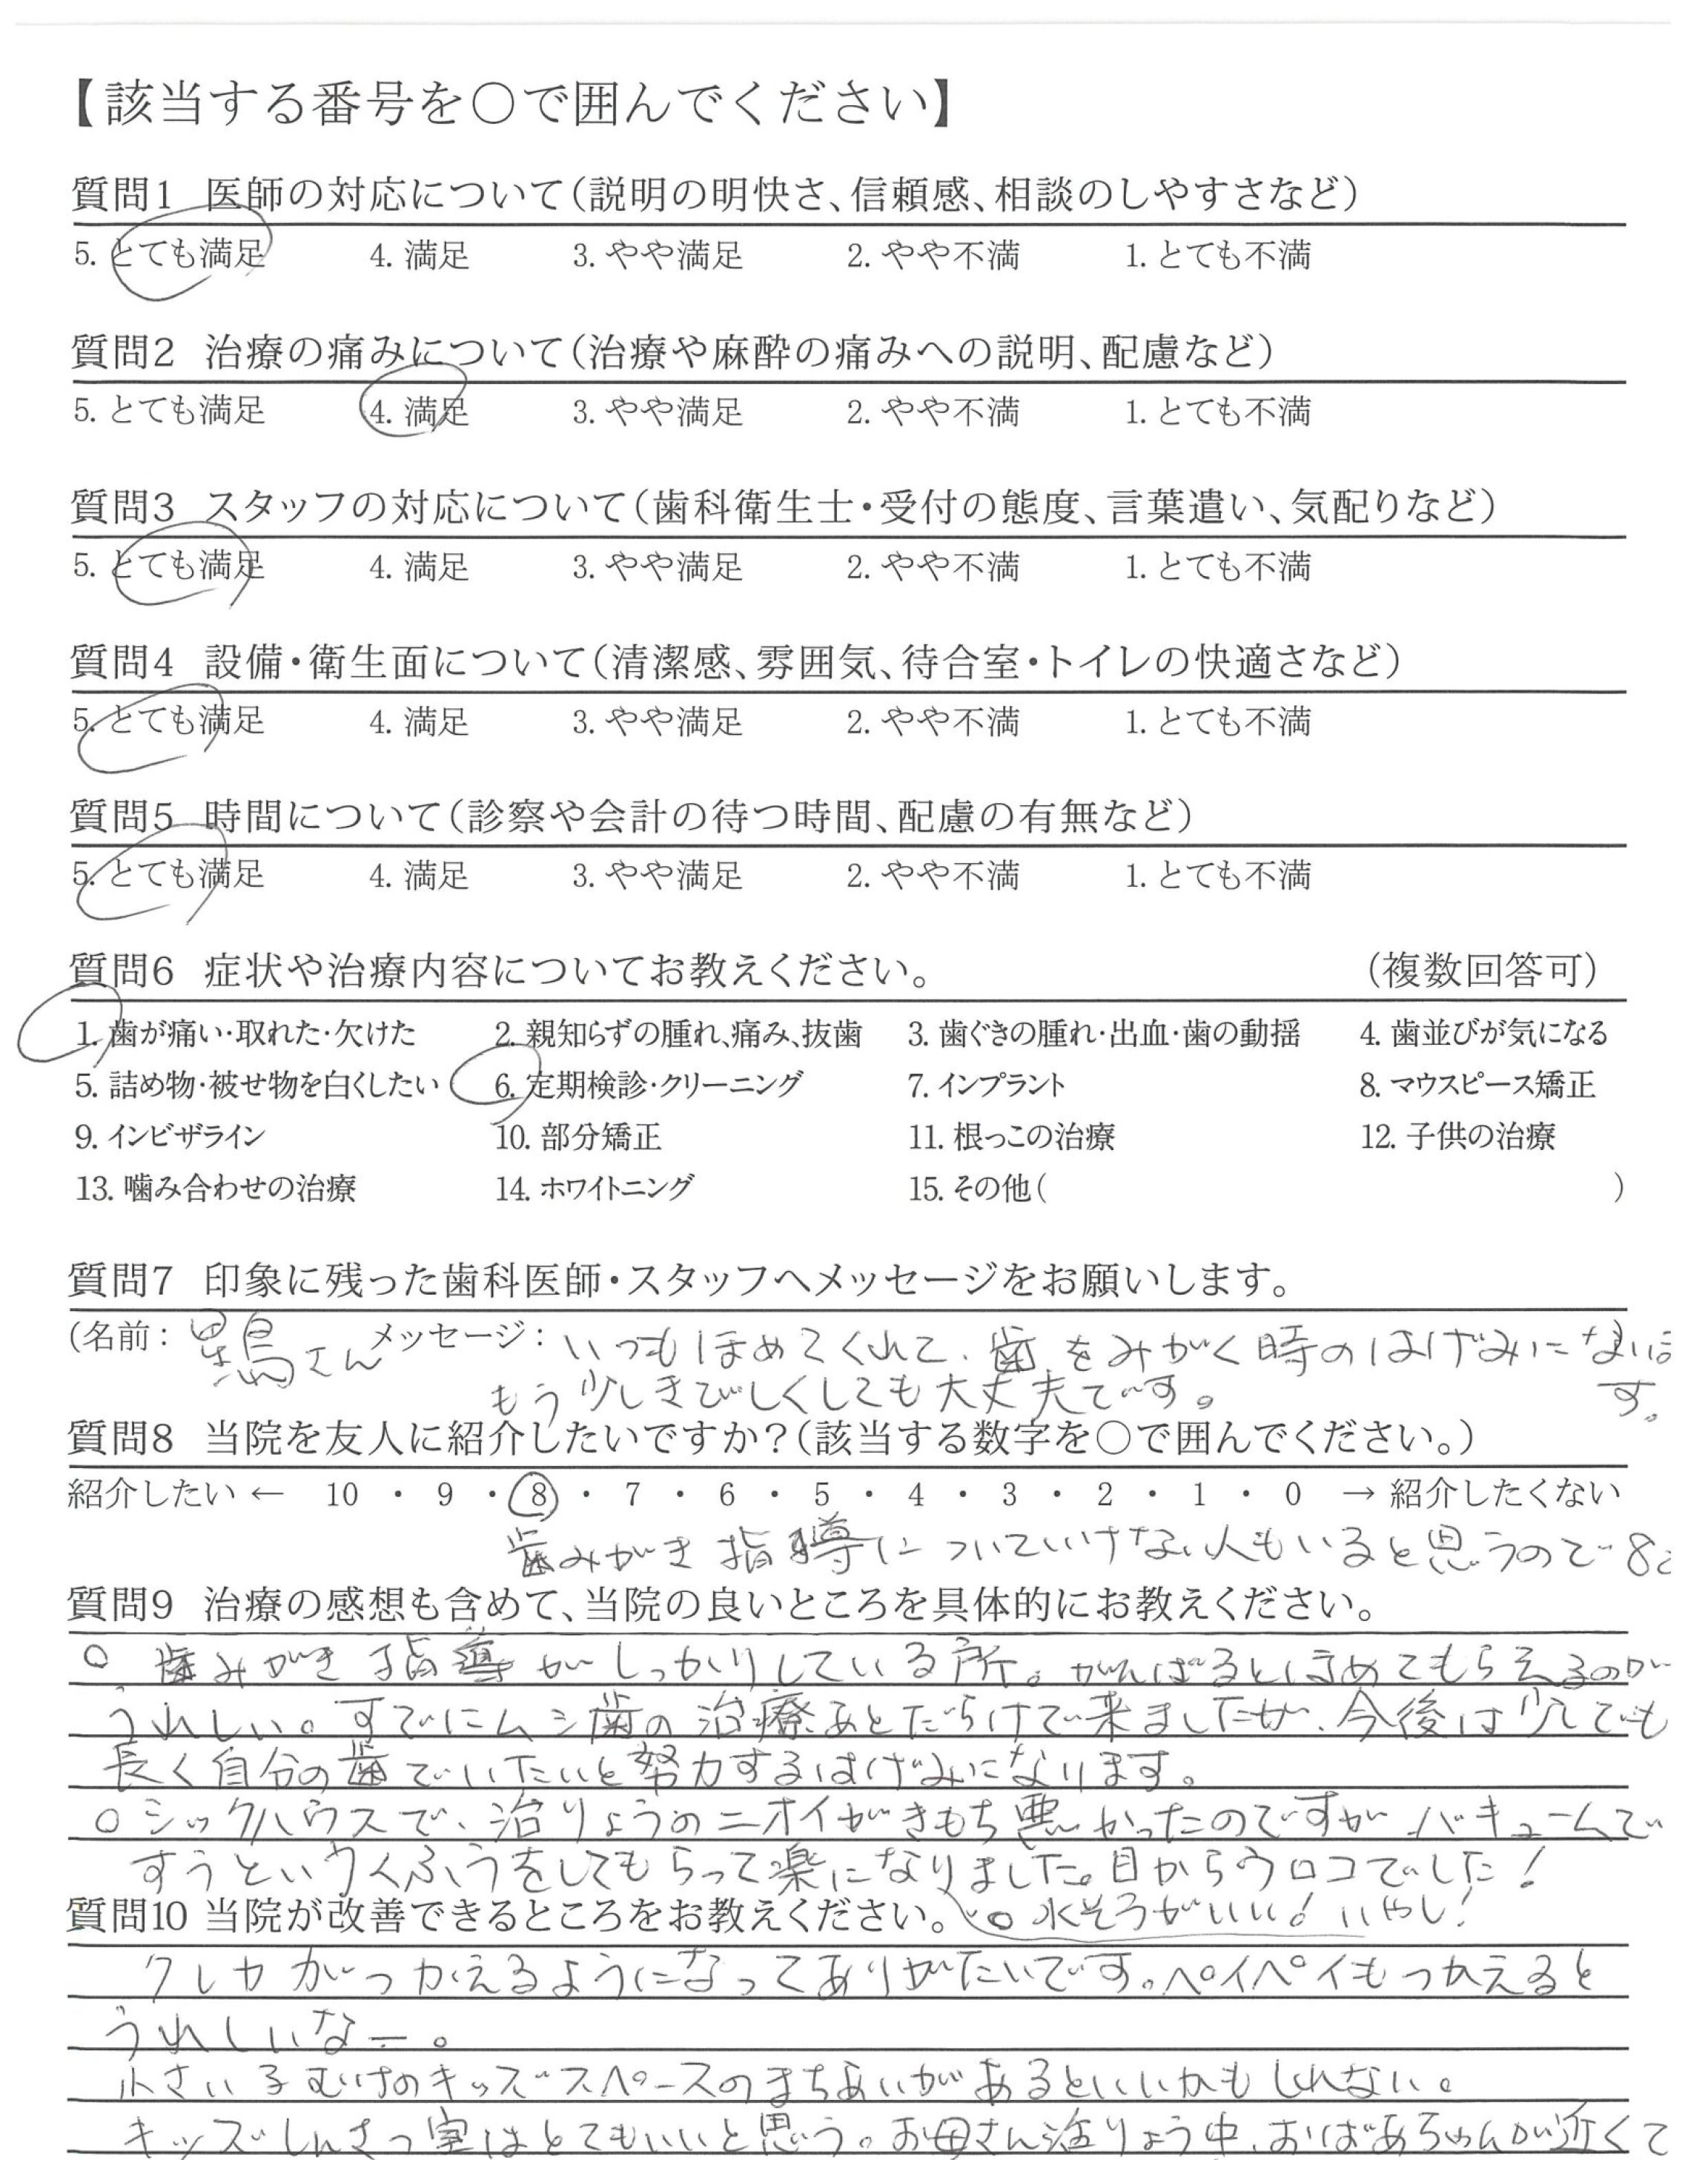 【該当する番号を○で囲んでください】
質問1 医師の対応について(説明の明快さ、信頼感、相談のしやすさなど)
5. とても満足 4. 満足 3. やや満足 2. やや不満 1. とても不満
質問2 治療の痛みについて(治療や麻酔の痛みへの説明、配慮など)
5. とても満足 4. 満足 3. やや満足 2. やや不満 1. とても不満
質問3 スタッフの対応について(歯科衛生士・受付の態度、言葉遣い、気配りなど)
5. とても満足 4. 満足 3. やや満足 2. やや不満 1. とても不満
質問4 設備・衛生面について(清潔感、雰囲気、待合室・トイレの快適さなど)
5. とても満足 4. 満足 3. やや満足 2. やや不満 1. とても不満
質問5 時間について(診察や会計の待つ時間、配慮の有無など)
5. とても満足 4. 満足 3. やや満足 2. やや不満 1. とても不満
質問6 症状や治療内容についてお教えください。 (複数回答可)
1. 歯が痛い・取れた・欠けた 2. 親知らずの腫れ、痛み、抜歯 3. 歯ぐきの腫れ・出血・歯の動揺 4. 歯並びが気になる
5. 詰め物・被せ物を白くしたい 6. 定期検診・クリーニング 7. インプラント 8. マウスピース矯正
9. インビザライン 10. 部分矯正 11. 根っこの治療 12. 子供の治療
13. 噛み合わせの治療 14. ホワイトニング 15. その他( )
質問7 印象に残った歯科医師・スタッフへメッセージをお願いします。
(名前: 黒鳥さん メッセージ: いつもほめてくれて、歯をみがく時のはげみになりま
す。
もう少しきびしくしても大丈夫です。
質問8 当院を友人に紹介したいですか?(該当する数字を○で囲んでください。)
紹介したい ← 10 ・ 9 ・ 8 ・ 7 ・ 6 ・ 5 ・ 4 ・ 3 ・ 2 ・ 1 ・ 0 → 紹介したくない
歯みがき指導についていけない人もいると思うので8
質問9 治療の感想も含めて、当院の良いところを具体的にお教えください。
○ 歯みがき指導がしっかりしている所。がんばるとほめてもらえるのが
うれしい。すでにムシ歯の治療あとだらけで来ましたが、今後は少しでも
長く自分の歯でいたいと努力するはげみになります。
○シックハウスで、治りょうのニオイがきもち悪かったのですがバキュームで
すうというくふうをしてもらって楽になりました。目からウロコでした!
○ 水そうがいい! いやし!
質問10 当院が改善できるところをお教えください。
クレカがつかえるようになってありがたいです。ペイペイもつかえると
うれしいなー。
小さい子むけのキッズスペースのまちあいがあるといいかもしれない。
キッズしんさつ室はとてもいいと思う。お母さん治りょう中、おばあちゃんが近くで